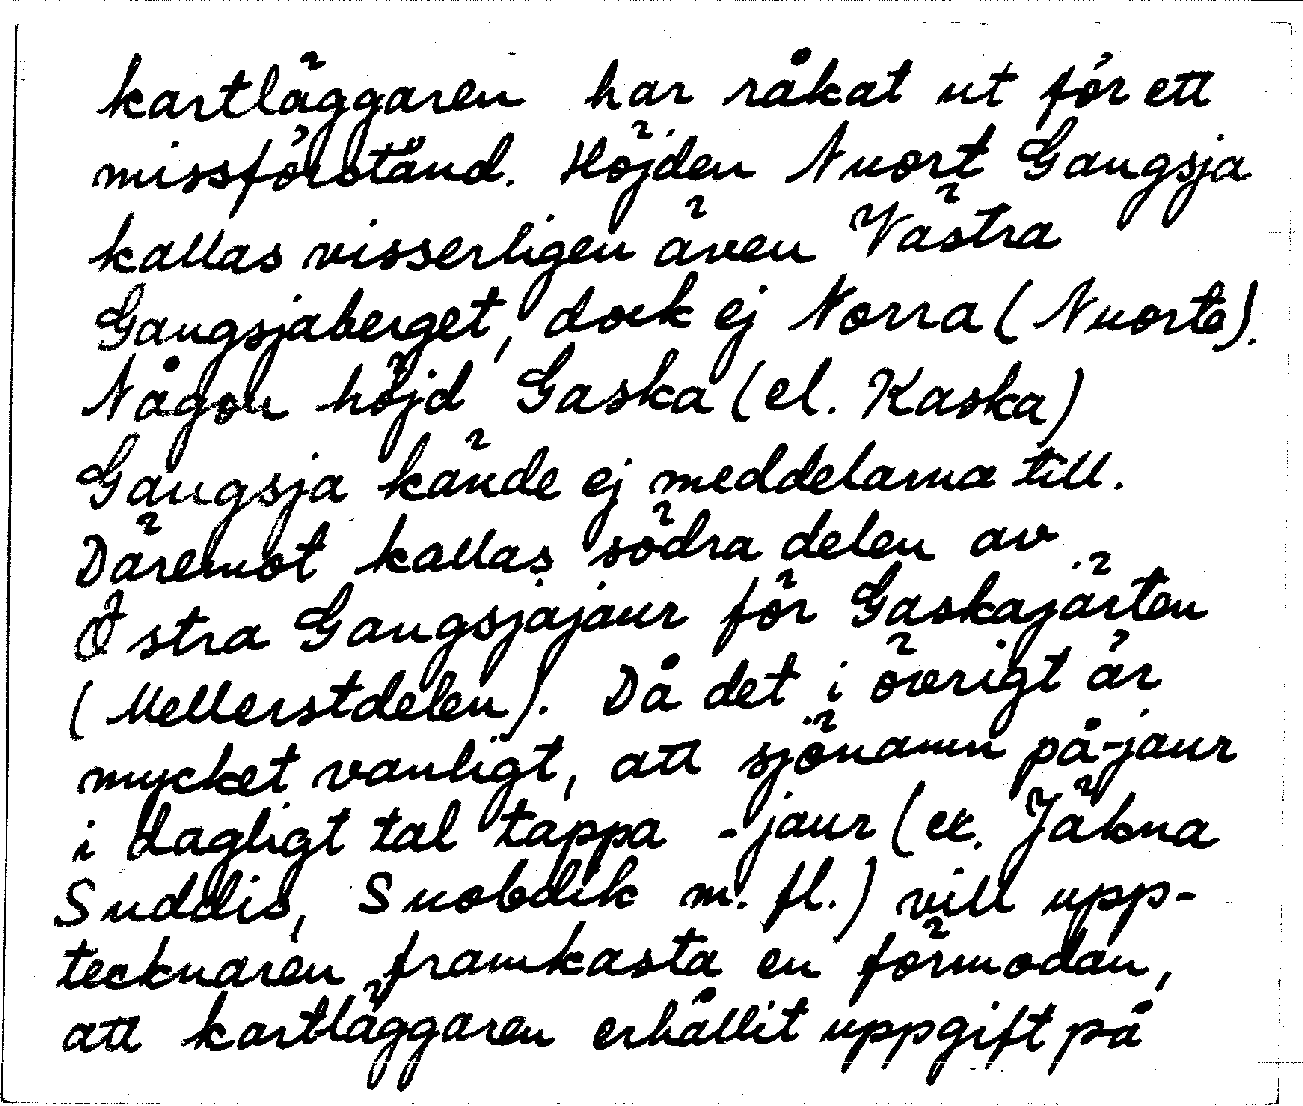 kartläggaren har råkat ut för ett
missförstånd. Höjden Nuort Gangsja
kallas visserligen även Västra
Gangsjaberget, dock ej Norra (Nuorte).
Någon höjd Gaska (el. Kaska)
Gangsja kände ej meddelarna till.
Däremot kallas södra delen av
Östra Gangsjajaur för Gaskajärten
(Mellerstdelen). Då det i övrigt är
mycket vanligt, att sjönamn på -jaur
i dagligt tal tappa -jaur (ex. Jäkna
Suddis, Suobdik m. fl.) vill upp-
tecknaren framkasta en förmodan,
att kartläggaren erhållit uppgift på